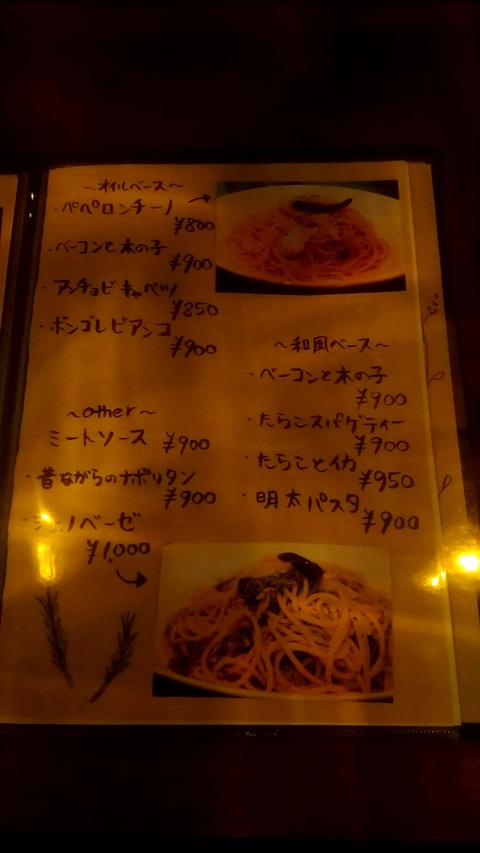 〜オイルベース〜
・ペペロンチーノ
¥800
・ベーコンと木の子
¥900
・アンチョビキャベツ
¥850
・ボンゴレビアンコ
¥900
〜other〜
・ミートソース ¥900
・昔ながらのナポリタン
¥900
・ジェノベーゼ
¥1,000
〜和風ベース〜
・ベーコンと木の子
¥900
・たらこスパゲティー
¥900
・たらことイカ
¥950
・明太パスタ
¥900